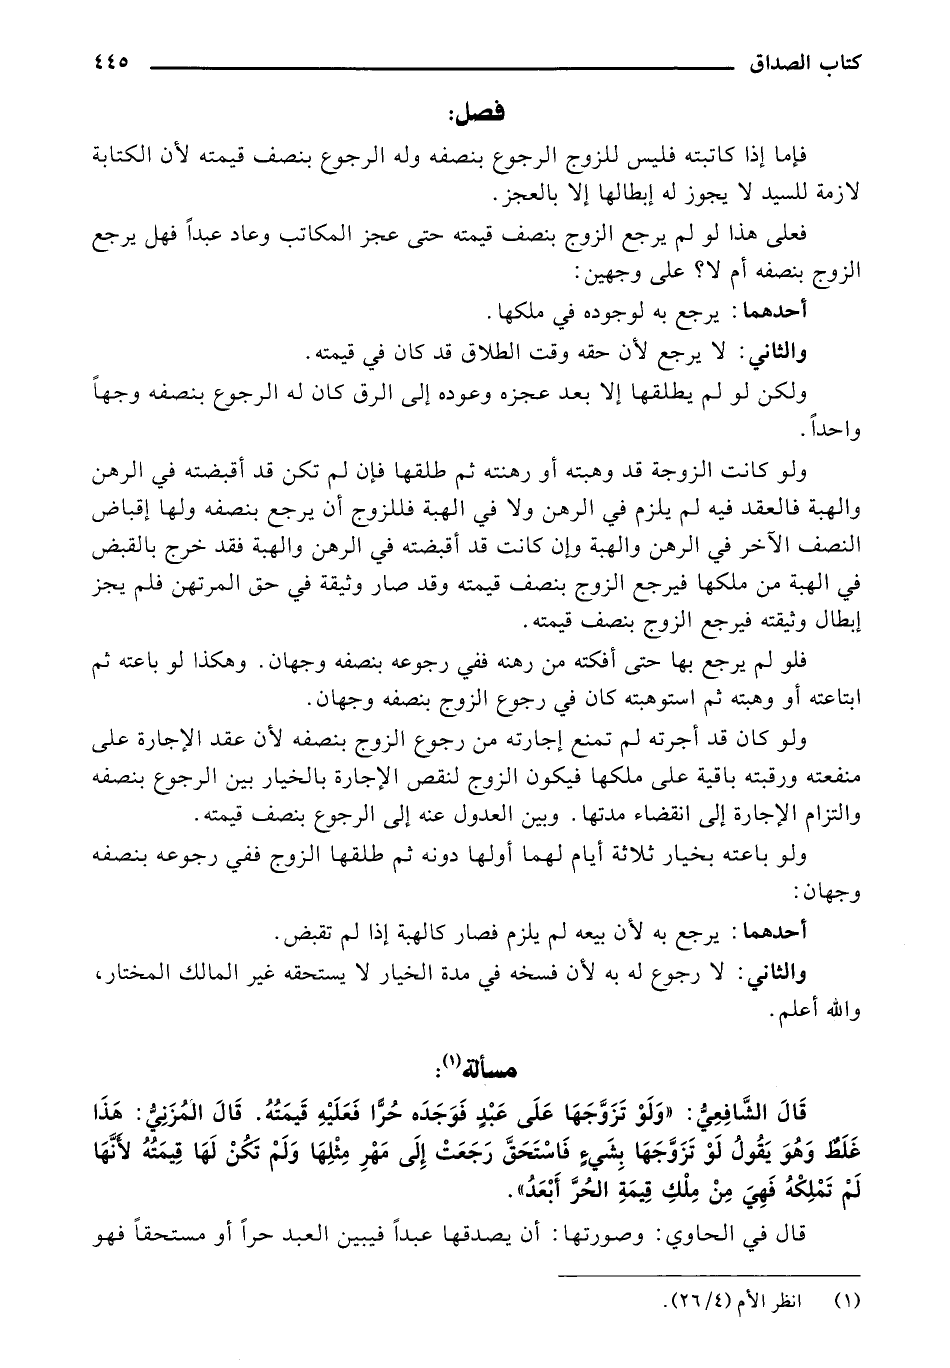 كتاب الصداق ٤٤٥
فصل:
فإما إذا كاتبته فليس للزوج الرجوع بنصفه وله الرجوع بنصف قيمته لأن الكتابة
لازمة للسيد لا يجوز له إبطالها إلا بالعجز.
فعلى هذا لو لم يرجع الزوج بنصف قيمته حتى عجز المكاتب وعاد عبداً فهل يرجع
الزوج بنصفه أم لا؟ على وجهين:
أحدهما: يرجع به لوجوده في ملكها.
والثاني: لا يرجع لأن حقه وقت الطلاق قد كان في قيمته.
ولكن لو لم يطلقها إلا بعد عجزه وعوده إلى الرق كان له الرجوع بنصفه وجهاً
واحداً.
ولو كانت الزوجة قد وهبته أو رهنته ثم طلقها فإن لم تكن قد أقبضته في الرهن
والهبة فالعقد فيه لم يلزم في الرهن ولا في الهبة فللزوج أن يرجع بنصفه ولها إقباض
النصف الآخر في الرهن والهبة وإن كانت قد أقبضته في الرهن والهبة فقد خرج بالقبض
في الهبة من ملكها فيرجع الزوج بنصف قيمته وقد صار وثيقة في حق المرتهن فلم يجز
إبطال وثيقته فيرجع الزوج بنصف قيمته.
فلو لم يرجع بها حتى أفكته من رهنه ففي رجوعه بنصفه وجهان. وهكذا لو باعته ثم
ابتاعته أو وهبته ثم استوهبته كان في رجوع الزوج بنصفه وجهان.
ولو كان قد أجرته لم تمنع إجارته من رجوع الزوج بنصفه لأن عقد الإجارة على
منفعته ورقبته باقية على ملكها فيكون الزوج لنقص الإجارة بالخيار بين الرجوع بنصفه
والتزام الإجارة إلى انقضاء مدتها. وبين العدول عنه إلى الرجوع بنصف قيمته.
ولو باعته بخيار ثلاثة أيام لهما أولها دونه ثم طلقها الزوج ففي رجوعه بنصفه
وجهان:
أحدهما: يرجع به لأن بيعه لم يلزم فصار كالهبة إذا لم تقبض.
والثاني: لا رجوع له به لأن فسخه في مدة الخيار لا يستحقه غير المالك المختار،
والله أعلم.
مسألة(١):
قَالَ الشَّافِعِيُّ: «وَلَوْ تَزَوَّجَهَا عَلَى عَبْدٍ فَوَجَدَه حُرًّا فَعَلَيْهِ قَيمَتُهُ. قَالَ المُزَنِيُّ: هَذَا
غَلَطٌ وَهُوَ يَقُولُ لَوْ تَزَوَّجَهَا بِشَيءٍ فَاسْتَحَقَّ رَجَعَتْ إِلَى مَهْرِ مِثْلِهَا وَلَمْ تَكُنْ لَهَا قِيمَتُهُ لأَنَّهَا
لَمْ تَمْلِكْهُ فَهِيَ مِنْ مِلْكِ قِيمَةِ الحُرَّ أَبْعَدُ».
قال في الحاوي: وصورتها: أن يصدقها عبداً فيبين العبد حراً أو مستحقاً فهو
(١) انظر الأم (٤/ ٢٦).